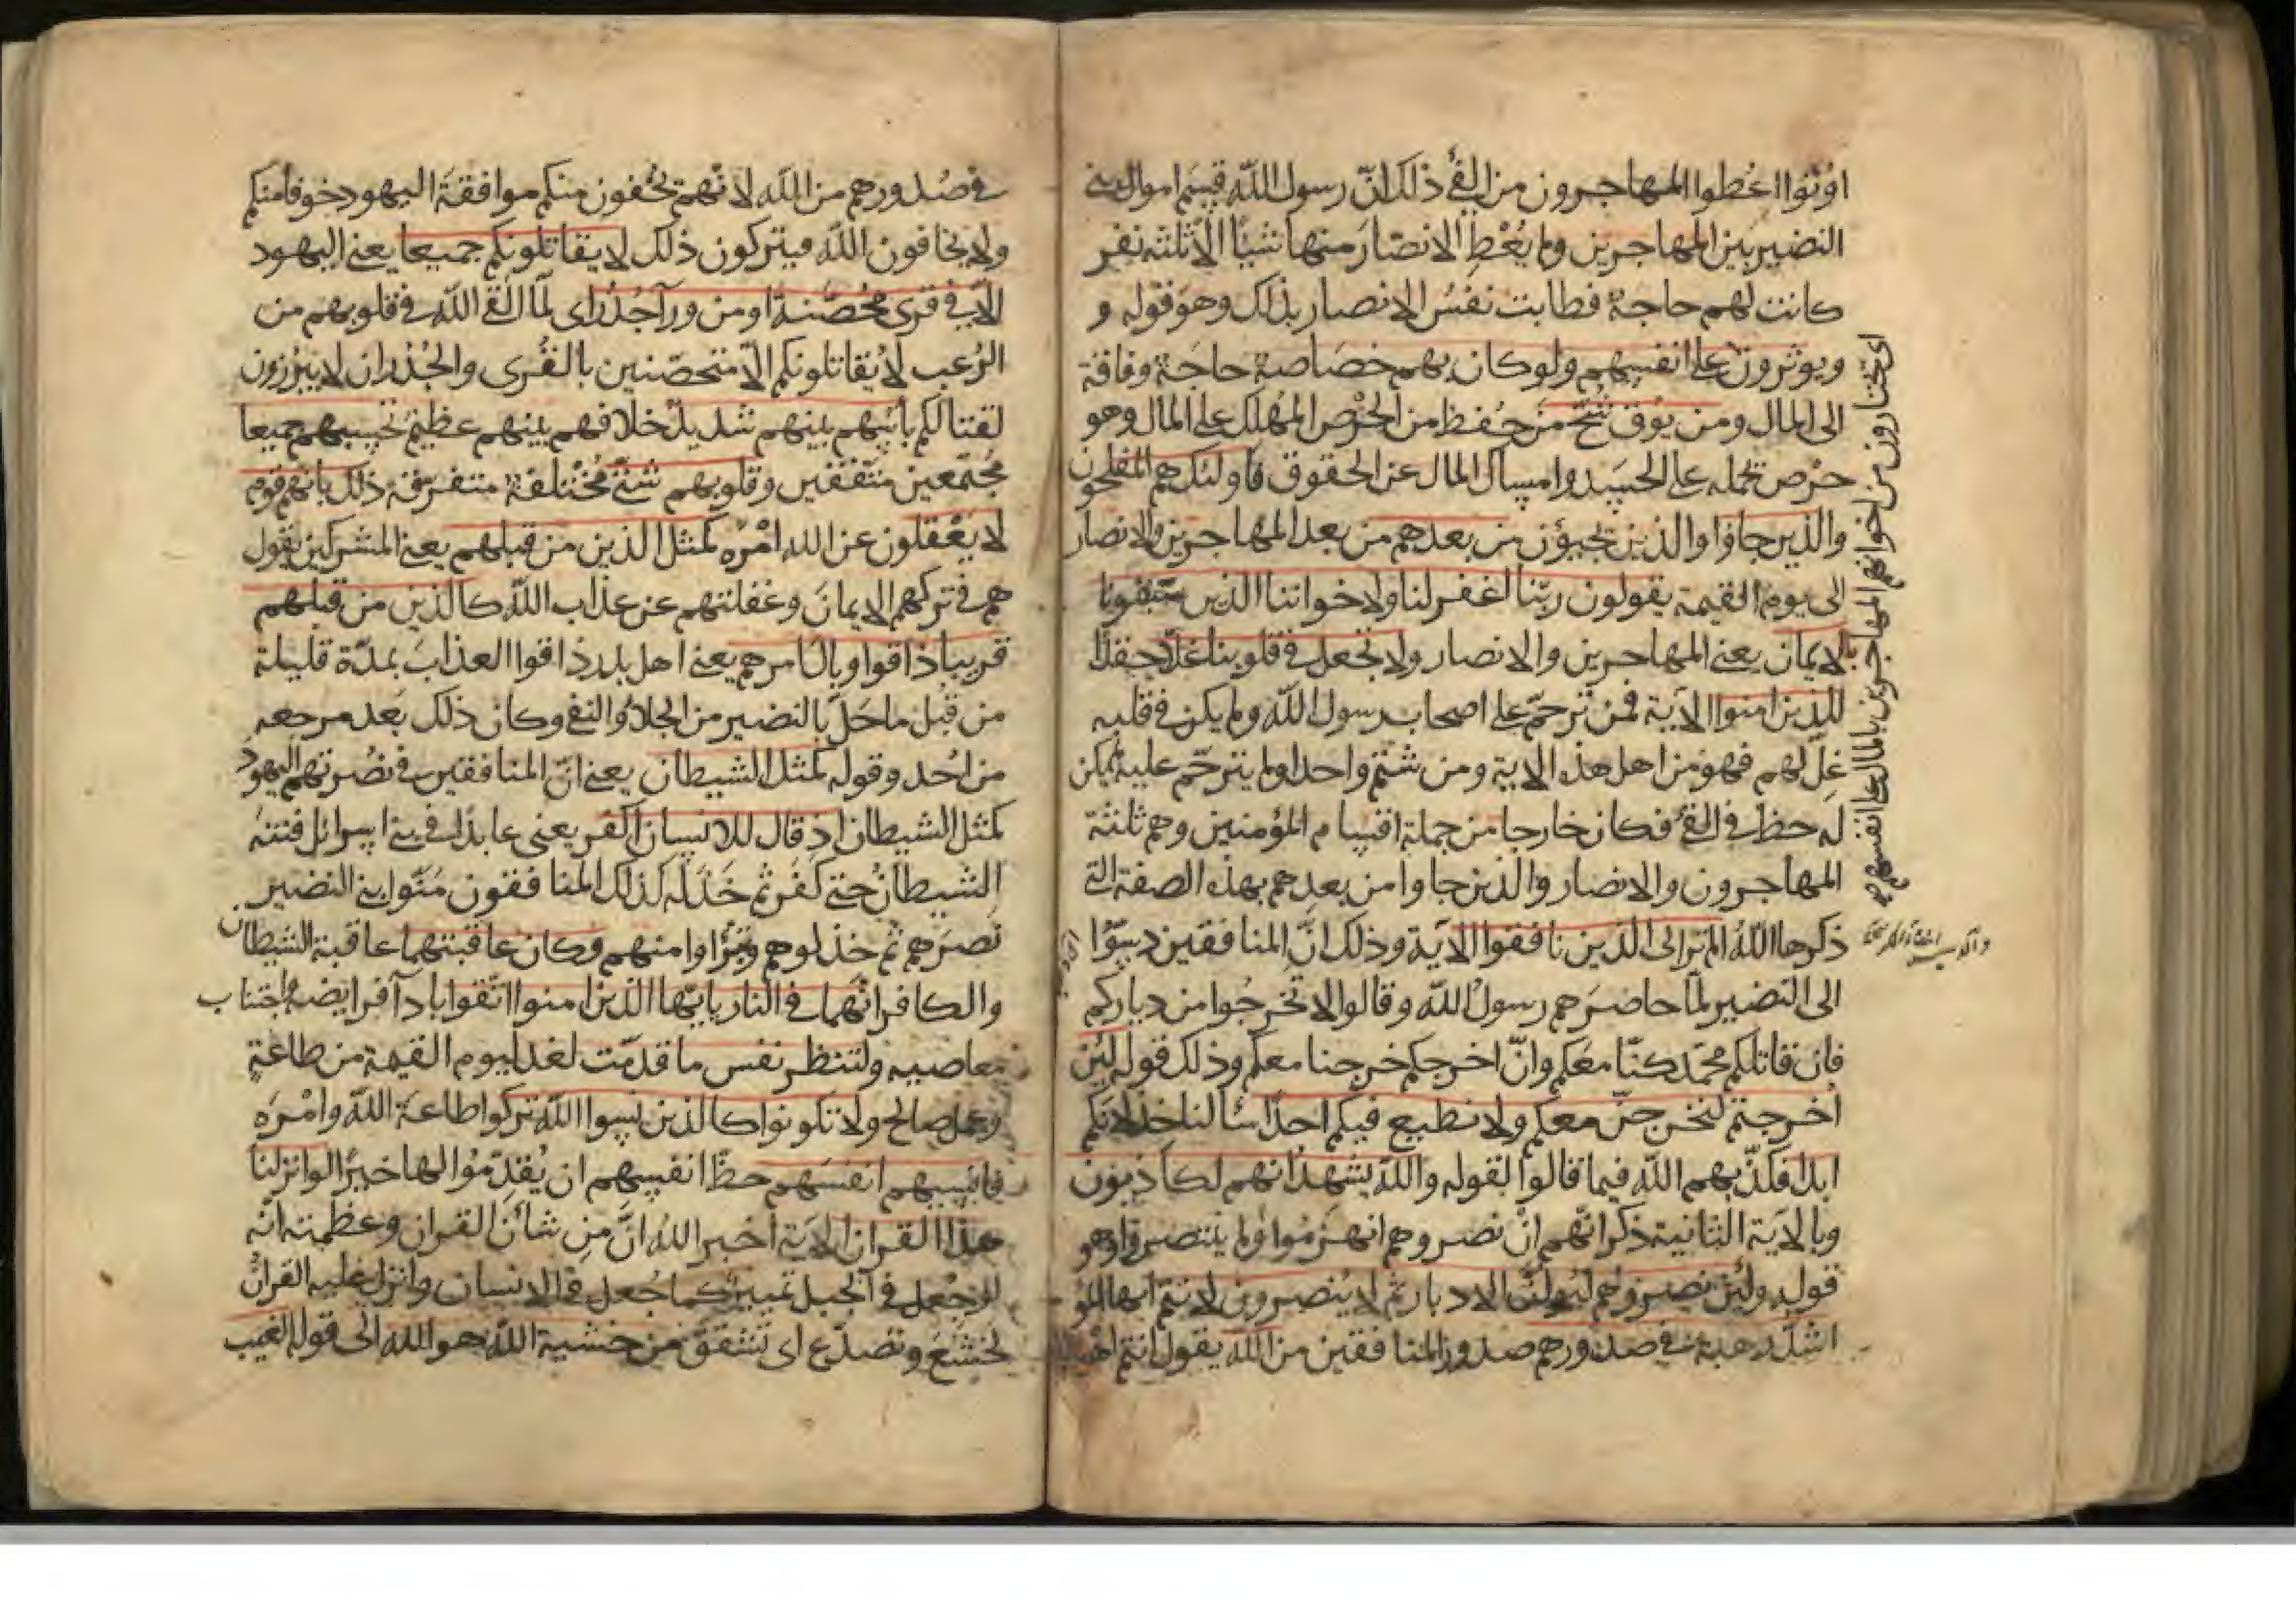 اوتوا اعطوا المهاجرون من الفئ ذلك انّ رسول الله قسم اموال بني
النضير بين المهاجرين ولم يُعْطِ الانصار منها شيئًا الّا ثلثة نفر
كانت لهم حاجة فطابت نفسُ الانصار بذلك وهو قوله و
ويوثرون على انفسهم ولو كان بهم خصاصة حاجة وفاقة
الى المال ومن يوق شحّ من حُفظ من الحرْص المُهلك على المال وهو
حرْص يحمله على الحسد وامساك المال عن الحقوق فاولئك هم المفلحون
والذين جاؤا والذين يجيؤن من بعدهم من بعد المهاجرين والانصار
الى يوم القيمة يقولون ربّنا اغفر لنا ولاخواننا الذين سبقونا
بالايمان يعني المهاجرين والانصار ولا تجعل في قلوبنا غلّا حقدًا
للذين امنوا الاية فمن ترحّم على اصحاب رسول الله ولم يكن في قلبه
غِلّ لهم فهو من اهل هذه الاية ومن شتم واحدا ولم يترحّم عليه لم يكن
له حظّ في الفئ فكان خارجا من جملة اقسام المؤمنين وهم ثلثة
المهاجرون والانصار والذين جاوا من بعدهم بهذه الصفة التي
ذكرها اللهُ الم تر الى الذين نافقوا الاية وذلك انّ المنافقين دسّوا
الى النضير لمّا حاصرَهم رسولُ الله وقالوا لا تخرجُوا من دياركم
فان قاتلكم محمّد كنّا معكم وانْ اخرجكم خرجنا معكم وذلك قوله لئن
اُخرجتم لنخرجنّ معكم ولا نطيع فيكم احدًا سألنا خذلانكم
ابدا فكذّبهم الله فيما قالوا بقوله والله يشهد انهم لكاذبون
وبالاية الثانية ذكر انّهم انْ نصروهم انهزمُوا ولم ينتصروا وهو
قوله ولئن نصروهم ليُولُّنّ الادبار ثم لا يُنصرون لانتم ايها المؤ
اشدّ رهبة في صدورهم صدور المنافقين من الله يقول انتم
اي يختارون من اخوانهم المهاجرين بالمال على انفسهم
في صُدورهم من الله لانّهم يُخفون منكم موافقة اليهود خوفا منكم
ولا يخافون الله فيتركون ذلك لا يقاتلونكم جميعا يعني اليهود
الّا في قرى مُحصّنة او من ورآ جُدُر اى لمّا القى الله في قلوبهم من
الرُعب لا يُقاتلونكم الّا متحصّنين بالقُرى والجُدْران لا يبرُزون
لقتالكم بأسهم بينهم شديد خلافهم بينهم عظيم تحسبهم جميعا
مُجتمعين متّفقين وقلوبهم شتّى مُختلفة متفرّقة ذلك بانهم قوم
لا يَعْقلون عن الله امْره كمثل الذين من قبلهم يعني المشركين يقول
هم في تركهم الايمانَ وغفلتهم عن عذاب الله كالذين من قبلهم
قريبا ذاقوا وبالَ امرهم يعني اهل بدر ذاقوا العذابَ بمدّة قليلة
من قبْل ما حَلّ بالنضير من الجلاء والنفى وكان ذلك بعد مرجعه
من اُحُد وقوله كمثل الشيطان يعني انّ المنافقين في نصْرتهم اليهود
كمثل الشيطان اذ قال للانسان اكفر يعنى عابدًا في بني اسرائل فتنهُ
الشيطانُ حتى كفر ثم خَذَله كذلك المنافقون منّوا بني النضير
نصرَهم ثم خذلوهم وتبرّاوا منهم وكان عاقبتهما عاقبة الشيطان
والكافر انّهما في النار يايّها الذين امنوا اتّقوا بادآ فرايضه واجتناب
معاصيه ولتنظر نفس ما قدمّت لغد ليوم القيمة من طاعةٍ
وعمل صالح ولا تكونوا كالذين نسوا الله تركوا طاعةَ الله وامْرَه
فانسيهم انفسَهم حظّ انفسهم ان يُقدّمُوا لها خيرًا لو انزلنا
هذا القران الاية اخبر اللهُ انّ مِن شأن القران وعظمته انّه
لو جُعل في الجبل تمييز كما جُعل في الانسان وانزل عليه القرانُ
لخشَعَ وتصدّع اى تشقّقَ من خشية الله هو الله الى قوله الغيب